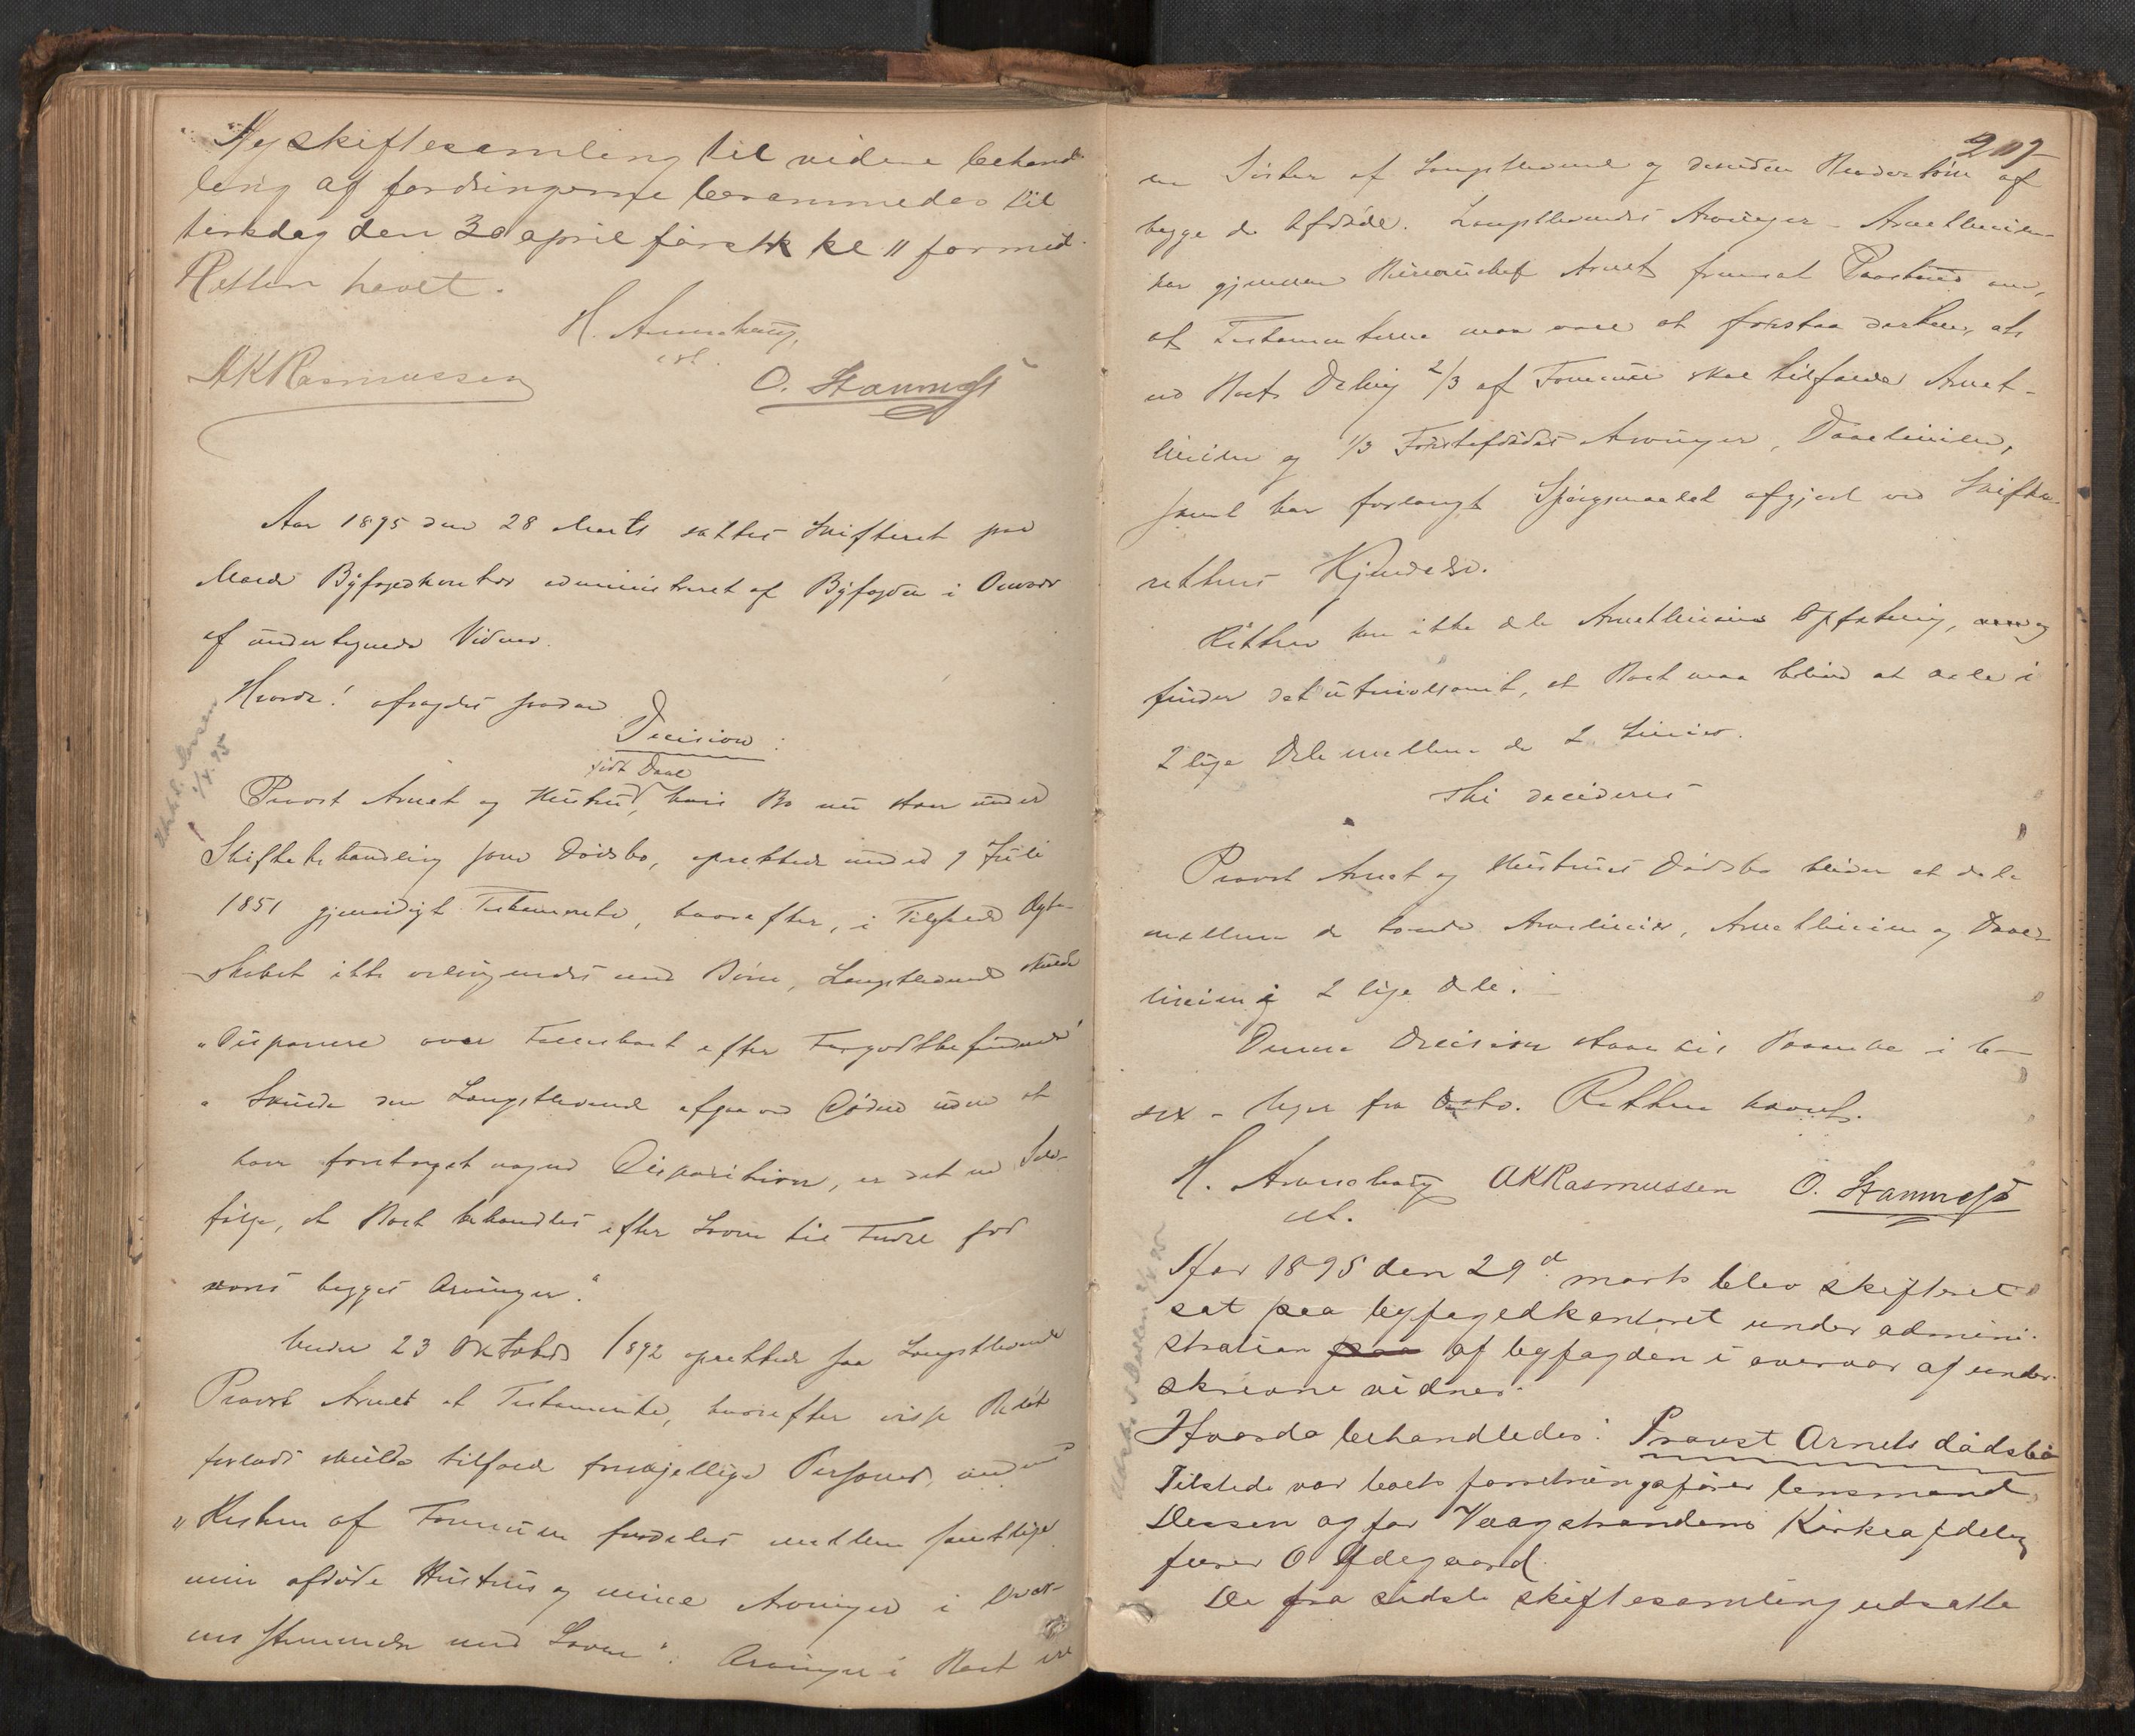 Ny skiftesamling til videre behand-
ling af fordringerne berammedes til
tirsdag den 30 april förstk kl 11 formid.
Retten hævet.
H. Anneberg,
cst.
AKRasmussen
O. Stammesø
Aar 1895 den 28 Marts sattes Skifteret paa
Molde Byfogedkontor administreret af Byfogden i Overvær
af undertegnede Vidner.
Hvorda! afsagdes saadan
Decision:
født Daae
Provst Arnet og Hustru, hvis Bo nu staar under
Skiftebehandling som Dødsbo, oprettede under 9 Juli
1851 gjensidigt Testamente, hvorefter, i Tilfælde Ægte-
skabet ikke velsignedes med Børn, Længstlevende skulde
"disponere over Fællesboet efter Forgodtbefindende"
" Skulde den Længstlevende afgaa ved Døden uden at
have foretaget nogen Disposition, er det en Selv-
følge, at Boet behandles efter Loven til Fordel for
vores begges Arvinger."
Under 23 Oktober 1892 oprettede saa Længstlevende
Provst Arnet et Testamente, hvorefter visse Beløb
forlods skulde tilfalde forskjellige Personer, medens
"Resten af Formuen fordeles mellem samtlige
min afdøde Hustrus og mine Arvinger i Over-
ensstemmelse med Loven". Arvinger i Boet ere
207
en Søster af Længstlevende og desuden Søskendebørn af
begge de Afdøde. Længstlevendes Arvinger - Arnetlinien -
har gjennem Bureauchef Arnet fremsat Paastand om,
at Testamenterne maa være at forstaa derhen, at
ved Boets Deling 2/3 af Formuen skal tilfalde Arnet-
linien og 1/3 Førstafdødes Arvinger, Daaelinien,
samt har forlangt Spørgsmaalet afgjort ved Skifte-
rettens Kjendelse.
Retten kan ikke dele Arnetliniens Opfatning, men
finder det utvivlsomt, at Boet maa blive at dele i
2 lige Dele mellem de 2 Linier.
Thi decideres
Provst Arnet og Hustrues Dødsbo bliver at dele
mellem de tvende Arvelinier, Arnetlinien og Daae-
linien i 2 lige Dele. -
Denne Decision staar til Paaanke i 6 -
sex - Uger fra Dato. Retten hævet.
H. Anneberg AKRasmussen O. Stammesø
cst.
Aar 1895 den 29d. marts blev skifteret
sat paa byfogedkontoret under admini-
stration paa af byfogden i overvær af under-
skrevne vidner.
Hvorda behandledes: Provst Arnets dødsbo
Tilstede var boets forretningsfører lensmand
Dessen og for Vaagstrandens Kirkeafdeling
fører O. Ødegaard.
De fra sidste skiftesamling udsatte